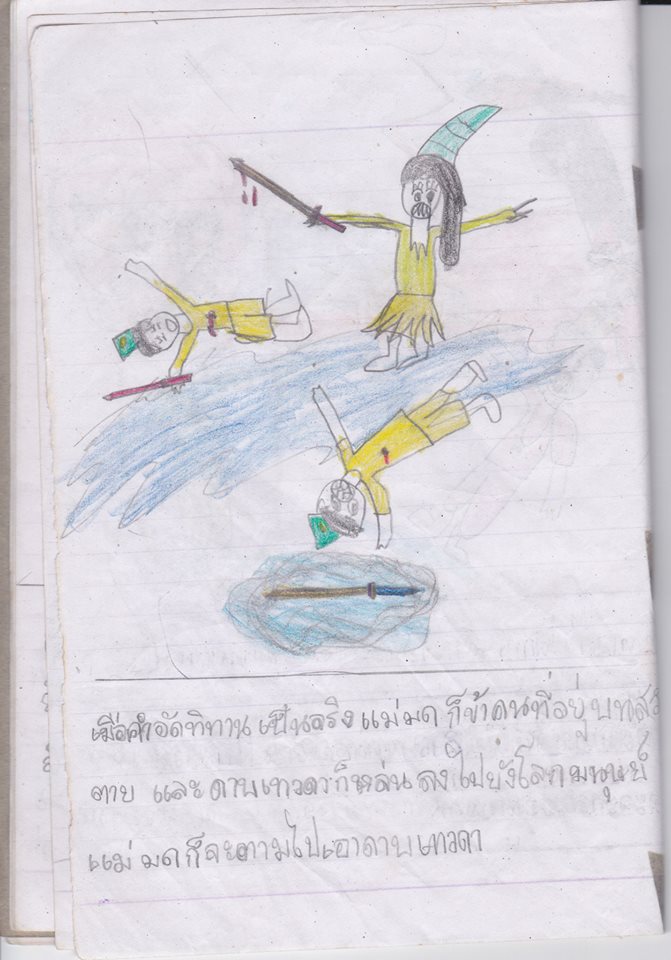 เมื่อคำอัดทิทาน เป็นจริง แม่มด ก็ฆ่าคนที่อยู่บนสว
ตาย และ ดาบเทวดาก็หล่น ลงไปยังโลกมนุษย์
แม่มดก็จะตามไปเอาดาบเทวดา